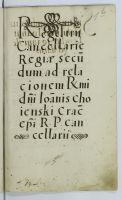 Cancellarie
Regiæ secū
dum ad rela
cionem Rmi
dm̄ Ioānis cho
ienski Crac̄
epi R. P. can
cellarii